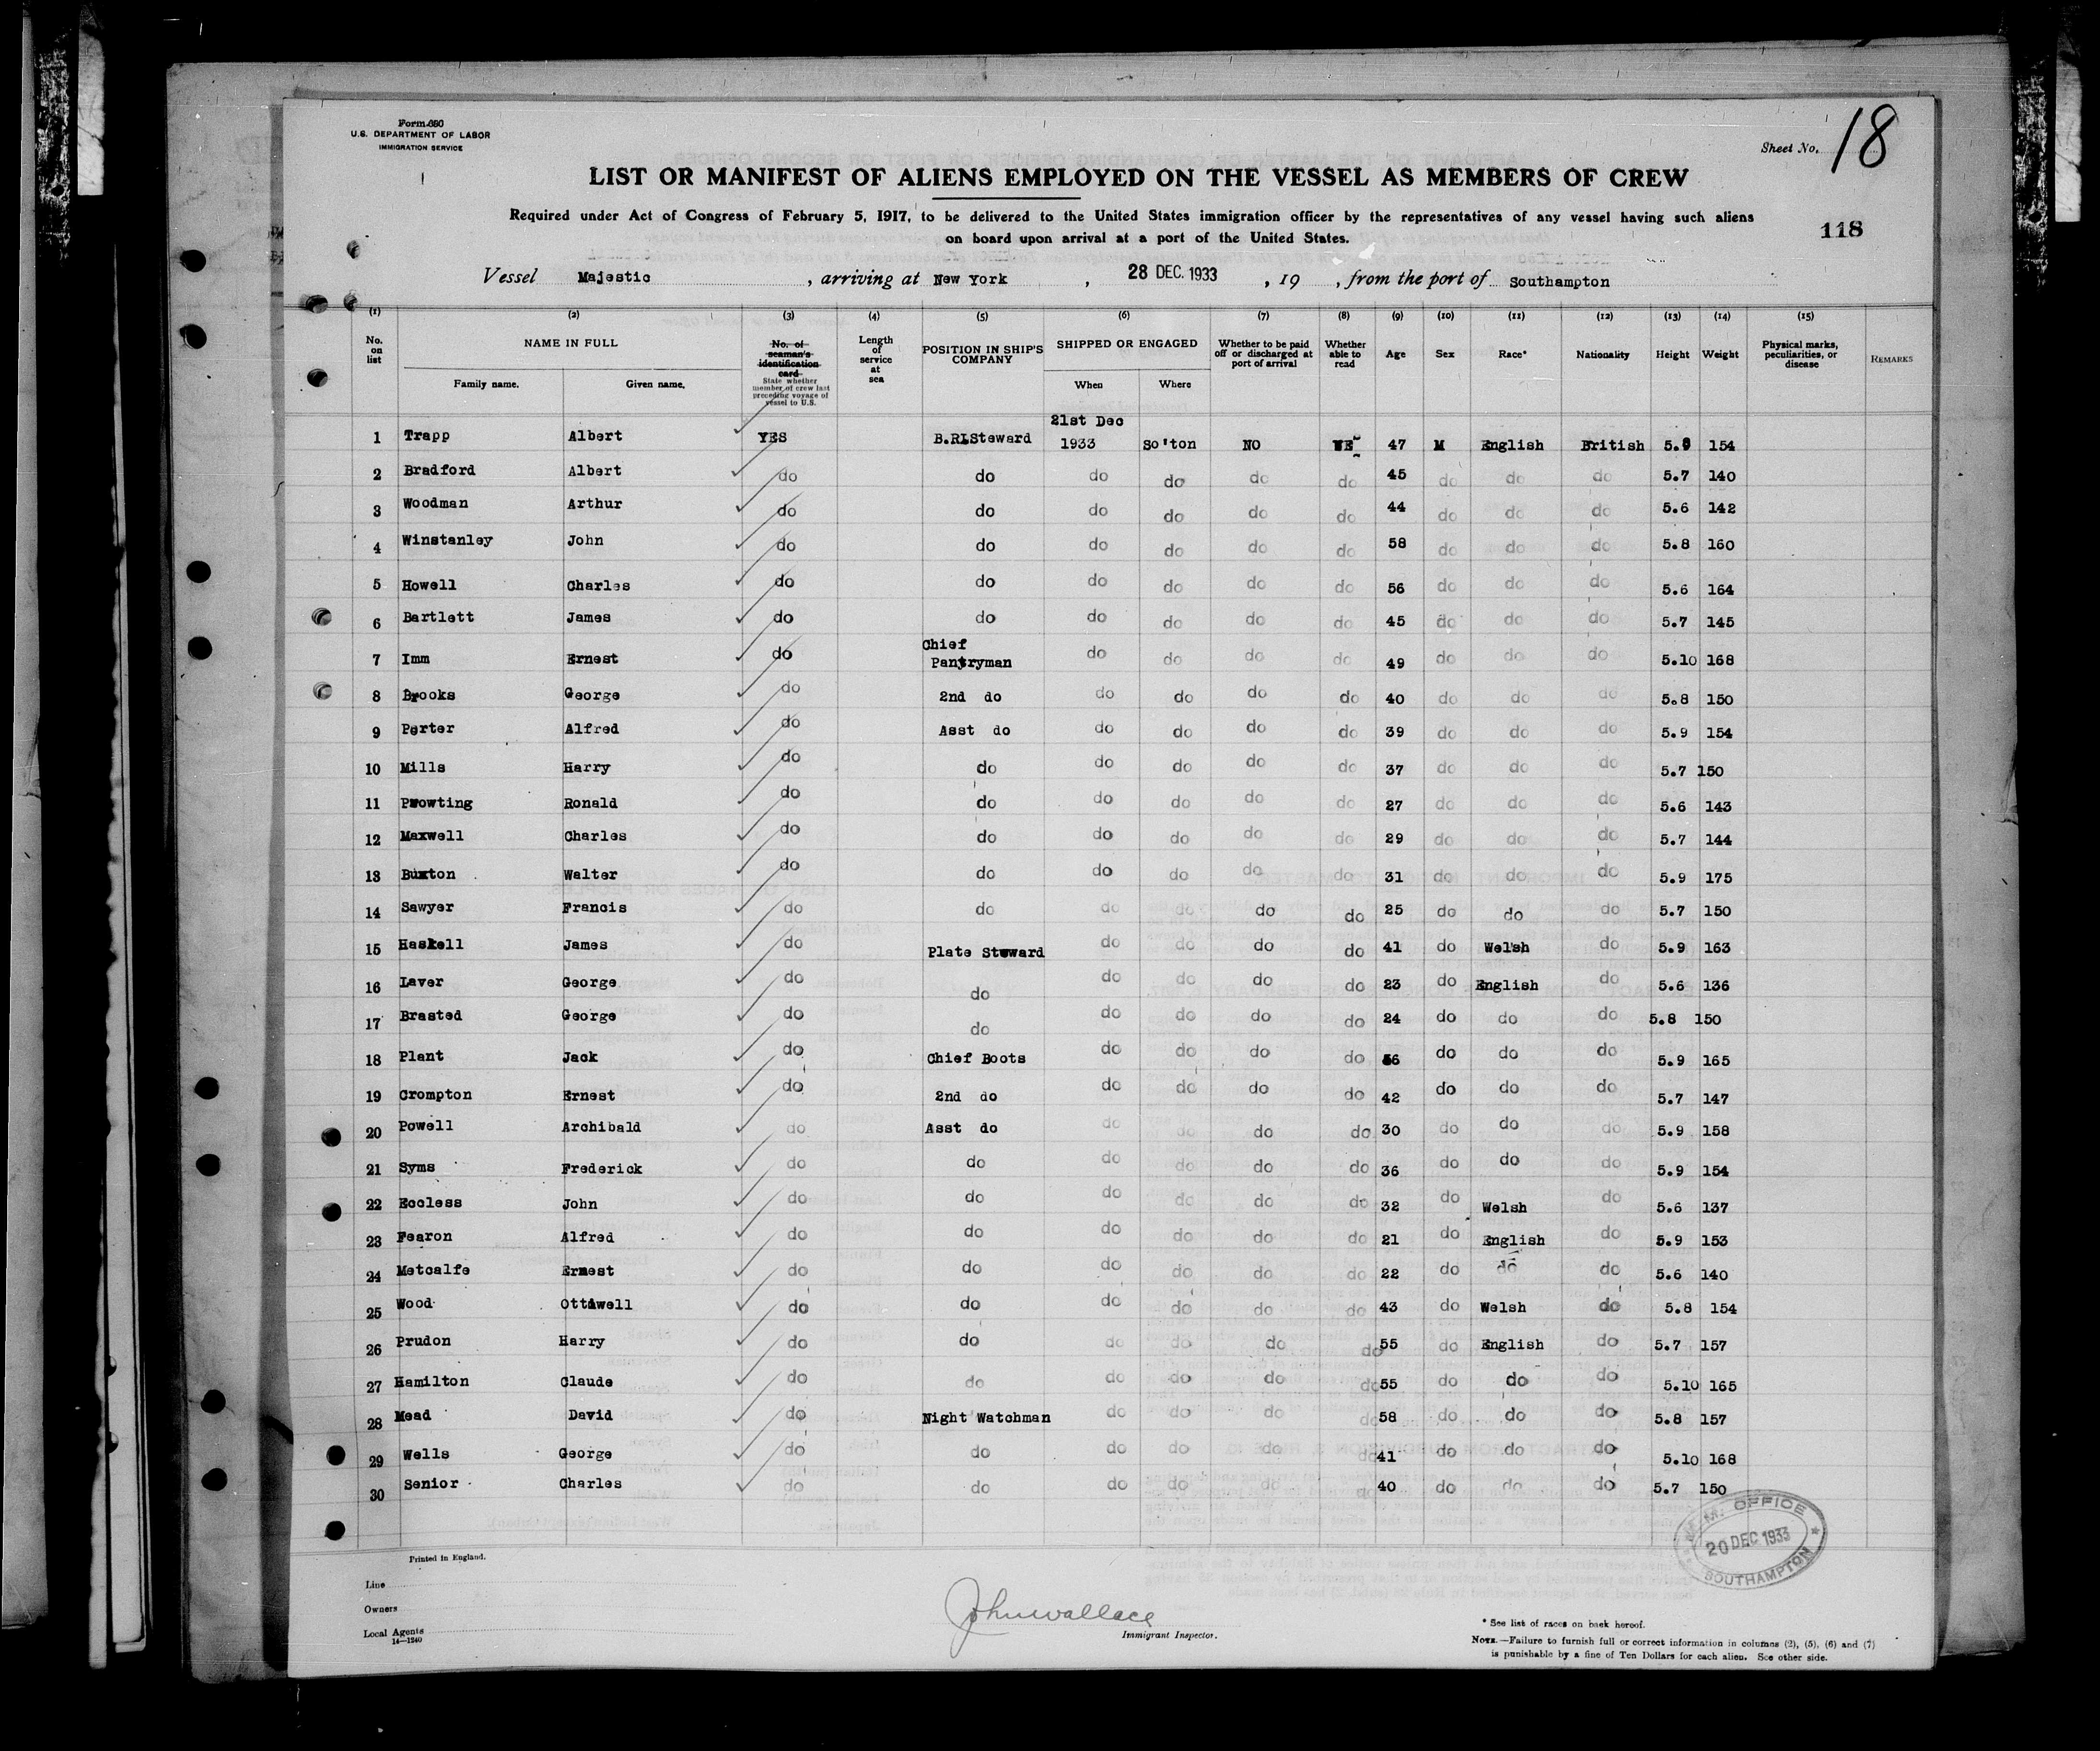 Form 680
U.S. DEPARTMENT OF LABOR
IMMIGRATION SERVICE
Sheet No. 18
LIST OR MANIFEST OF ALIENS EMPLOYED ON THE VESSEL AS MEMBERS OF CREW
Required under Act of Congress of February 5, 1917, to be delivered to the United States immigration officer by the representatives of any vessel having such aliens
on board upon arrival at a port of the United States.
118
Vessel Majestic , arriving at New York , 28 DEC. 1933 , 19 , from the port of Southampton
(1) (2) (3) (4) (5) (6) (7) (8) (9) (10) (11) (12) (13) (14) (15)
No. on list NAME IN FULL Family name. Given name. No. of seaman's identification card State whether member of crew last preceding voyage of vessel to U.S. Length of service at sea POSITION IN SHIP'S COMPANY SHIPPED OR ENGAGED When Where Whether to be paid off or discharged at port of arrival Whether able to read Age Sex Race* Nationality Height Weight Physical marks, peculiarities, or disease REMARKS
1 Trapp Albert YES B.R.Steward 21st Dec 1933 So'ton NO 47 M English British 5.8 154
2 Bradford Albert do do do do do do 45 do do do 5.7 140
3 Woodman Arthur do do do do do do 44 do do do 5.6 142
4 Winstanley John do do do do do do 58 do do do 5.8 160
5 Howell Charles do do do do do do 56 do do do 5.6 164
6 Bartlett James do do do do do do 45 do do do 5.7 145
7 Imm Ernest do Chief Pantryman do do do do 49 do do do 5.10 168
8 Brooks George do 2nd do do do do do 40 do do do 5.8 150
9 Porter Alfred do Asst do do do do do 39 do do do 5.9 154
10 Mills Harry do do do do do do 37 do do do 5.7 150
11 Prowting Ronald do do do do do do 27 do do do 5.6 143
12 Maxwell Charles do do do do do do 29 do do do 5.7 144
13 Buxton Walter do do do do do do 31 do do do 5.9 175
14 Sawyer Francis do do do do do do 25 do do do 5.7 150
15 Haskell James do Plate Steward do do do do 41 do Welsh do 5.9 163
16 Laver George do do do do do do 23 do English do 5.6 136
17 Brasted George do do do do do do 24 do do do 5.8 150
18 Plant Jack do Chief Boots do do do do 56 do do do 5.9 165
19 Crompton Ernest do 2nd do do do do do 42 do do do 5.7 147
20 Powell Archibald do Asst do do do do do 30 do do do 5.9 158
21 Syms Frederick do do do do do do 36 do do do 5.9 154
22 Eccless John do do do do do do 32 do Welsh do 5.6 137
23 Fearon Alfred do do do do do do 21 do English do 5.9 153
24 Metcalfe Ernest do do do do do do 22 do do do 5.6 140
25 Wood Ottiwell do do do do do do 43 do Welsh do 5.8 154
26 Prudon Harry do do do do do do 55 do English do 5.7 157
27 Hamilton Claude do do do do do do 55 do do do 5.10 165
28 Mead David do Night Watchman do do do do 58 do do do 5.8 157
29 Wells George do do do do do do 41 do do do 5.10 168
30 Senior Charles do do do do do do 40 do do do 5.7 150
OFFICE
20 DEC 1933
SOUTHAMPTON
Printed in England.
Line
Owners
Local Agents
14—1240
John Wallace
Immigrant Inspector.
* See list of races on back hereof.
NOTE.—Failure to furnish full or correct information in columns (2), (5), (6) and (7)
is punishable by a fine of Ten Dollars for each alien. See other side.